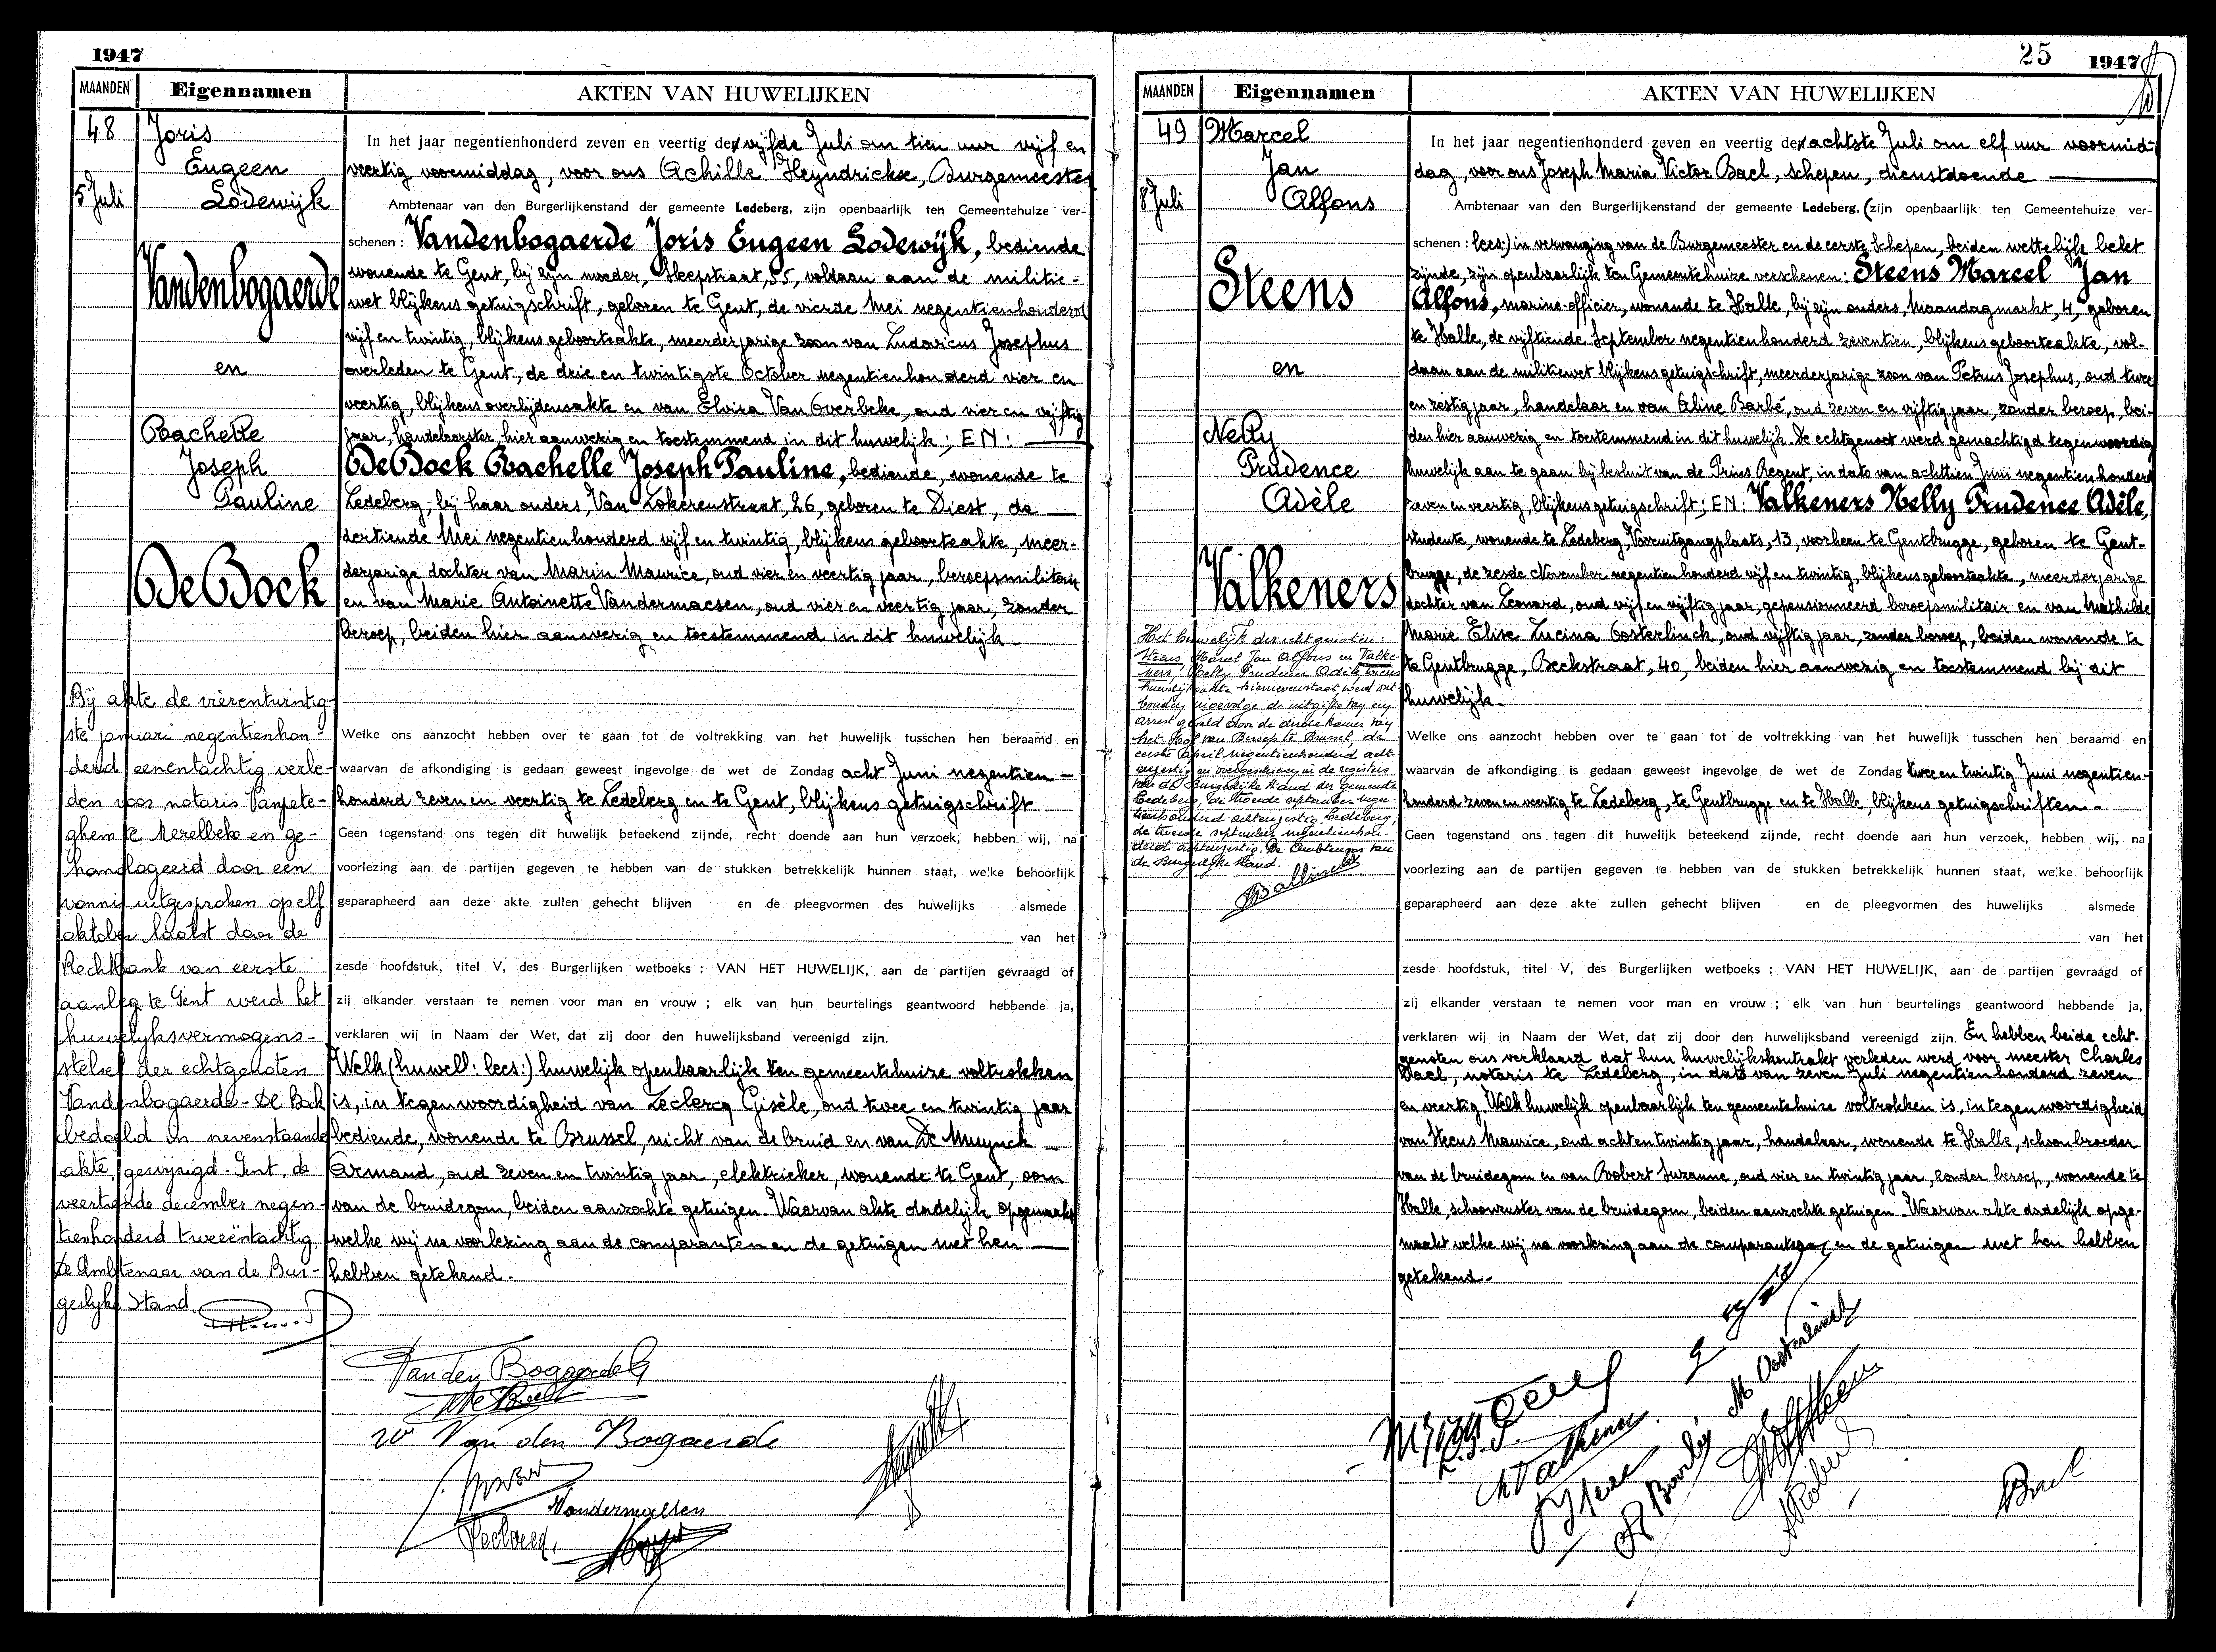 1947
MAANDEN
Eigennamen
AKTEN VAN HUWELIJKEN
48
5 Juli
Joris
Eugeen
Lodewijk
Vandenbogaerde
en
Rachelle
Joseph
Pauline
De Bock
In het jaar negentienhonderd zeven en veertig den vijfde Juli om tien uur vijf en
veertig voormiddag, voor ons Achille Heyndrickx, Burgemeester
Ambtenaar van den Burgerlijkenstand der gemeente Ledeberg, zijn openbaarlijk ten Gemeentehuize ver-
schenen: Vandenbogaerde Joris Eugeen Lodewijk, bediende
wonende te Gent, bij zijn moeder, Sleepstraat, 55, voldaan aan de militie-
wet blijkens getuigschrift, geboren te Gent, de vierde Mei negentienhonderd
vijf en twintig, blijkens geboorteakte, meerderjarige zoon van Ludovicus Josephus
overleden te Gent, de drie en twintigste October negentienhonderd vier en
veertig, blijkens overlijdensakte en van Elvira Van Overbeke, oud vier en vijftig
jaar, handelaarster, hier aanwezig en toestemmend in dit huwelijk; EN:
De Bock Rachelle Joseph Pauline, bediende, wonende te
Ledeberg, bij haar ouders, Van Lokerenstraat, 26, geboren te Diest, de
dertiende Mei negentienhonderd vijf en twintig, blijkens geboorteakte, meer-
derjarige dochter van Marin Maurice, oud vier en veertig jaar, beroepsmilitair
en van Marie Antoinette Vandermaesen, oud vier en veertig jaar, zonder
beroep, beiden hier aanwezig en toestemmend in dit huwelijk.
Welke ons aanzocht hebben over te gaan tot de voltrekking van het huwelijk tusschen hen beraamd en
waarvan de afkondiging is gedaan geweest ingevolge de wet de Zondag acht Juni negentien-
honderd zeven en veertig te Ledeberg en te Gent, blijkens getuigschrift.
Geen tegenstand ons tegen dit huwelijk beteekend zijnde, recht doende aan hun verzoek, hebben wij, na
voorlezing aan de partijen gegeven te hebben van de stukken betrekkelijk hunnen staat, welke behoorlijk
geparapheerd aan deze akte zullen gehecht blijven en de pleegvormen des huwelijks alsmede
van het
zesde hoofdstuk, titel V, des Burgerlijken wetboeks : VAN HET HUWELIJK, aan de partijen gevraagd of
zij elkander verstaan te nemen voor man en vrouw ; elk van hun beurtelings geantwoord hebbende ja,
verklaren wij in Naam der Wet, dat zij door den huwelijksband vereenigd zijn.
Welk (huwell: lees:) huwelijk openbaarlijk ten gemeentehuize voltrokken
is, in tegenwoordigheid van Leclercq Gisèle, oud twee en twintig jaar
bediende, wonende te Brussel, nicht van de bruid en van De Muynck
Armand, oud zeven en twintig jaar, elektrieker, wonende te Gent, oom
van de bruidegom, beiden aanzochte getuigen. Waarvan akte dadelijk opgemaakt
welke wij na voorlezing aan de comparanten en de getuigen met hen
hebben getekend.
Bij akte de vierentwintig-
ste januari negentienhon-
derd eenentachtig verle-
den voor notaris Vanpete-
ghem te Merelbeke en ge-
homologeerd door een
vonnis uitgesproken op elf
oktober laatst door de
Rechtbank van eerste
aanleg te Gent werd het
huwelijksvermogens-
stelsel der echtgenoten
Vandenbogaerde - De Bock
bedoeld in nevenstaande
akte, gewijzigd. Gent, de
veertiende december negen-
tienhonderd tweeëntachtig.
De Ambtenaar van de Bur-
gerlijke Stand.
Vanden Bogaerde G
W Van den Bogaerde
Vandermaesen
25
1947
MAANDEN
Eigennamen
AKTEN VAN HUWELIJKEN
49
8 Juli
Marcel
Jan
Alfons
Steens
en
Nelly
Prudence
Adèle
Valkeners
In het jaar negentienhonderd zeven en veertig den achtste Juli om elf uur voormid-
dag, voor ons Joseph Maria Victor Bael, schepen, dienstdoende
Ambtenaar van den Burgerlijkenstand der gemeente Ledeberg, (zijn openbaarlijk ten Gemeentehuize ver-
schenen: lees:) in vervanging van de Burgemeester en de eerste Schepen, beiden wettelijk belet
zijnde, zijn openbaarlijk ten Gemeentehuize verschenen: Steens Marcel Jan
Alfons, marine-officier, wonende te Halle, bij zijn ouders, Maandagmarkt, 4, geboren
te Halle, de vijftiende September negentienhonderd zeventien, blijkens geboorteakte, vol-
daan aan de militiewet blijkens getuigschrift, meerderjarige zoon van Petrus Josephus, oud twee
en zestig jaar, handelaar en van Aline Barbé, oud zeven en vijftig jaar, zonder beroep, bei-
den hier aanwezig en toestemmend in dit huwelijk. De echtgenoot werd gemachtigd tegenwoordig
huwelijk aan te gaan bij besluit van de Prins Regent, in dato van achttien Juni negentienhonderd
zeven en veertig, blijkens getuigschrift; EN: Valkeners Nelly Prudence Adèle,
studente, wonende te Ledeberg, Vooruitgangplaats, 13, voorheen te Gentbrugge, geboren te Gent-
brugge, de zesde November negentienhonderd vijf en twintig, blijkens geboorteakte, meerderjarige
dochter van Leonard, oud vijf en vijftig jaar, gepensionneerd beroepsmilitair en van Mathilde
Marie Elise Lucina Oosterlinck, oud vijftig jaar, zonder beroep, beiden wonende te
te Gentbrugge, Beekstraat, 40, beiden hier aanwezig en toestemmend bij dit
huwelijk.
Welke ons aanzocht hebben over te gaan tot de voltrekking van het huwelijk tusschen hen beraamd en
waarvan de afkondiging is gedaan geweest ingevolge de wet de Zondag twee en twintig Juni negentien-
honderd zeven en veertig te Ledeberg, te Gentbrugge en te Halle, blijkens getuigschriften.
Geen tegenstand ons tegen dit huwelijk beteekend zijnde, recht doende aan hun verzoek, hebben wij, na
voorlezing aan de partijen gegeven te hebben van de stukken betrekkelijk hunnen staat, welke behoorlijk
geparapheerd aan deze akte zullen gehecht blijven en de pleegvormen des huwelijks alsmede
van het
zesde hoofdstuk, titel V, des Burgerlijken wetboeks : VAN HET HUWELIJK, aan de partijen gevraagd of
zij elkander verstaan te nemen voor man en vrouw ; elk van hun beurtelings geantwoord hebbende ja,
verklaren wij in Naam der Wet, dat zij door den huwelijksband vereenigd zijn. En hebben beide echt-
genoten ons verklaard dat hun huwelijkskontrakt verleden werd voor meester Charles
Dael, notaris te Ledeberg, in dato van zeven Juli negentienhonderd zeven
en veertig. Welk huwelijk openbaarlijk ten gemeentehuize voltrokken is, in tegenwoordigheid
van Steens Maurice, oud achtentwintig jaar, handelaar, wonende te Halle, schoonbroeder
van de bruidegom en van Robert Suzanne, oud vier en twintig jaar, zonder beroep, wonende te
Halle, schoonzuster van de bruidegom, beiden aanzochte getuigen. Waarvan akte dadelijk opge-
maakt welke wij na voorlezing aan de comparanten en de getuigen met hen hebben
getekend.
Het huwelijk der echtgenoten:
Steens, Marcel Jan Alfons en Valke-
ners, Nelly Prudence Adèle, wiens
huwelijksakte hiernevenstaat, werd ont-
bonden ingevolge de uitgifte van een
arrest geveld door de derde kamer van
het Hof van Beroep te Brussel, de
eerste april negentienhonderd acht-
enzestig en overgeschreven in de registers
van de Burgerlijke Stand der gemeente
Ledeberg, de tweede september negen-
tienhonderd achtenzestig. Ledeberg,
de tweede september negentienhon-
derd achtenzestig. De Ambtenaar van
de Burgerlijke Stand.
M Oosterlinck
Bael